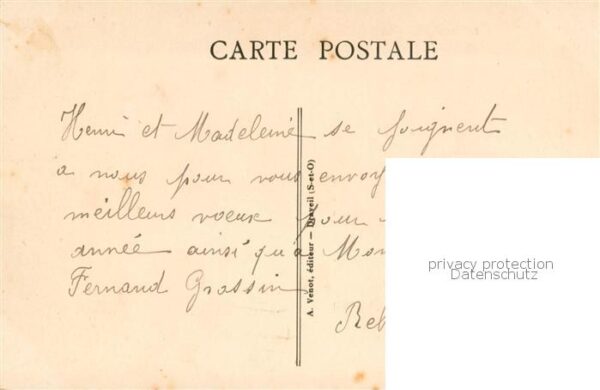 CARTE POSTALE
Henri et Madeleine se joignent
a nous pour vous envoy
meilleurs voeux pour
année ainsi qu'à Mon
Fernand Grassin
Reb
A. Venot, éditeur — Draveil (S-et-O)
privacy protection
Datenschutz